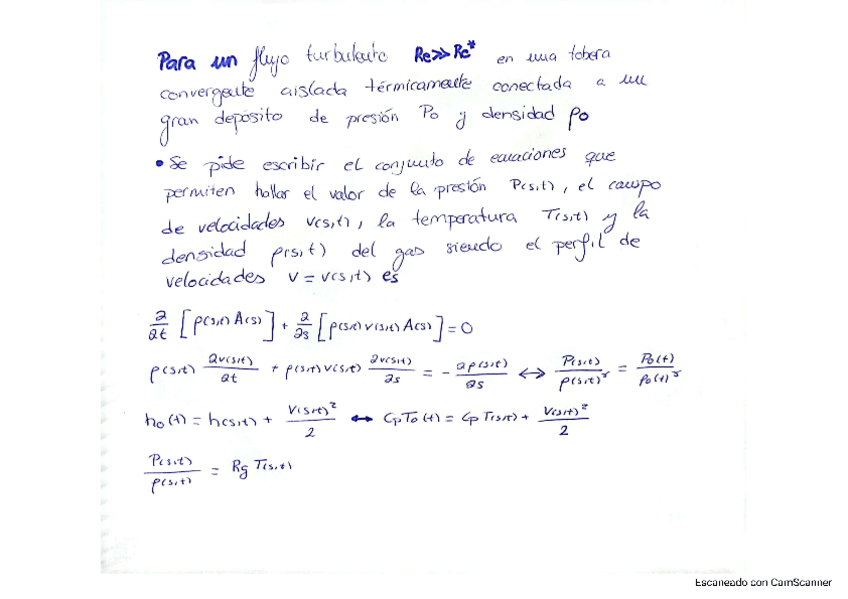 Para un flujo turbulento Re>>Re* en una tobera
convergente aislada térmicamente conectada a un
gran depósito de presión Po y densidad ρo
• Se pide escribir el conjunto de ecuaciones que
permiten hallar el valor de la presión P(s,t), el campo
de velocidades v(s,t), la temperatura T(s,t) y la
densidad ρ(s,t) del gas siendo el perfil de
velocidades v = v(s,t) es
∂/∂t [ρ(s,t) A(s)] + ∂/∂s [ρ(s,t) v(s,t) A(s)] = 0
ρ(s,t) ∂v(s,t)/∂t + ρ(s,t) v(s,t) ∂v(s,t)/∂s = - ∂p(s,t)/∂s ↔ P(s,t)/ρ(s,t)^γ = Po(t)/ρo(t)^γ
ho(t) = h(s,t) + v(s,t)²/2 ↔ Cp To(t) = Cp T(s,t) + v(s,t)²/2
P(s,t)/ρ(s,t) = Rg T(s,t)
Escaneado con CamScanner